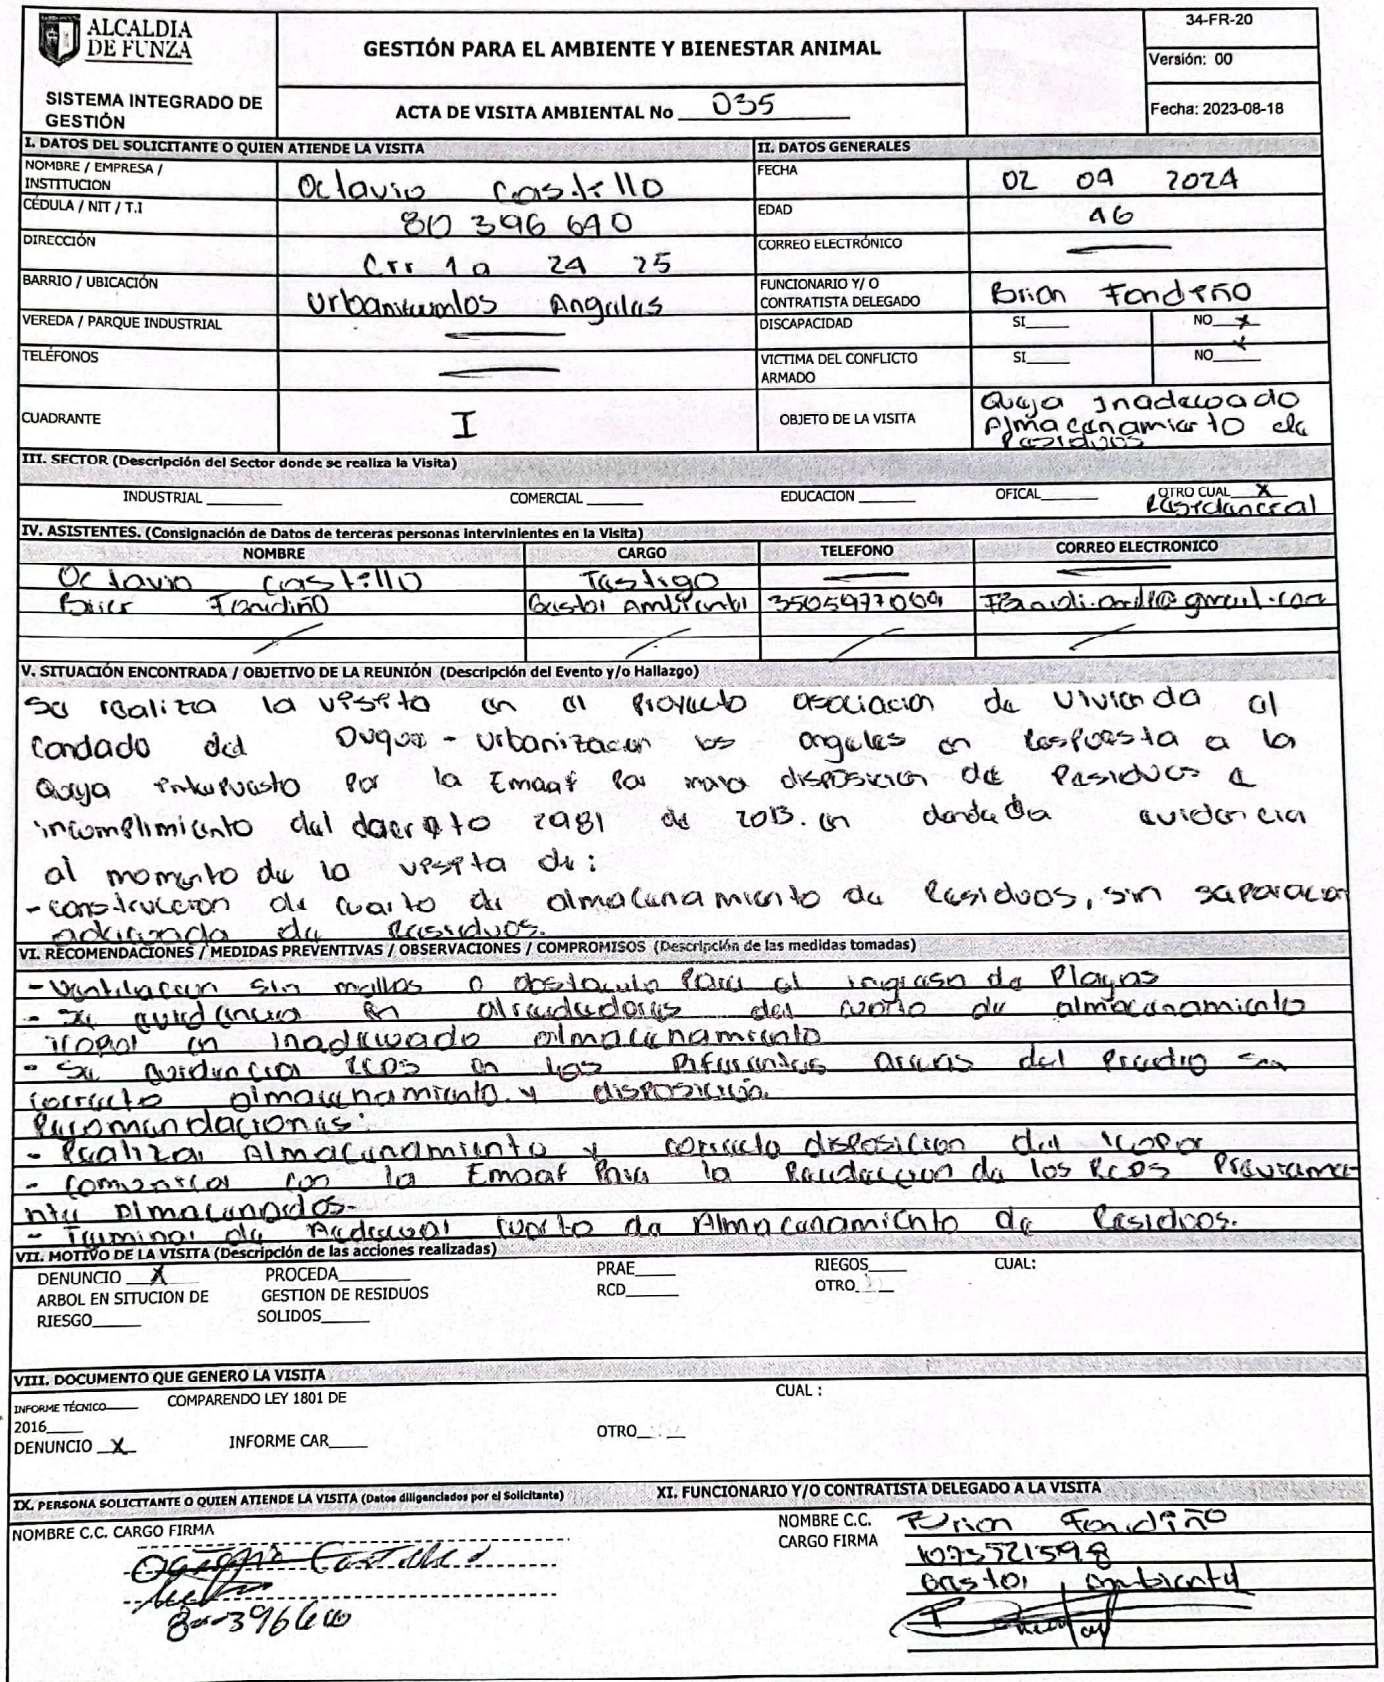 ALCALDIA
DE FUNZA
SISTEMA INTEGRADO DE
GESTIÓN
GESTIÓN PARA EL AMBIENTE Y BIENESTAR ANIMAL
ACTA DE VISITA AMBIENTAL No 035
34-FR-20
Versión: 00
Fecha: 2023-08-18
I. DATOS DEL SOLICITANTE O QUIEN ATIENDE LA VISITA
II. DATOS GENERALES
NOMBRE / EMPRESA /
INSTITUCION
Octavio Castillo
FECHA
02 09 2024
CÉDULA / NIT / T.I
80 396 640
EDAD
46
DIRECCIÓN
Crr 1a 24 25
CORREO ELECTRÓNICO
BARRIO / UBICACIÓN
Angeles
FUNCIONARIO Y/ O
CONTRATISTA DELEGADO
Brian Fandiño
VEREDA / PARQUE INDUSTRIAL
DISCAPACIDAD
SI
NO x
TELÉFONOS
VICTIMA DEL CONFLICTO
ARMADO
SI
NO x
CUADRANTE
I
OBJETO DE LA VISITA
Queja Inadecuado
Almacenamiento de
Residuos
III. SECTOR (Descripción del Sector donde se realiza la Visita)
INDUSTRIAL COMERCIAL EDUCACION OFICAL OTRO CUAL X
Residencial
IV. ASISTENTES. (Consignación de Datos de terceras personas intervinientes en la Visita)
NOMBRE CARGO TELEFONO CORREO ELECTRONICO
Octavio Castillo Testigo
Fandiño Gestor Ambiental 3505977009
V. SITUACIÓN ENCONTRADA / OBJETIVO DE LA REUNIÓN (Descripción del Evento y/o Hallazgo)
Se realiza la visita en el Proyecto asociacion de vivienda el
Condado del Duque - Urbanizacion los angeles en respuesta a la
Queja interpuesta Por la Emaaf Por mala disposicion de Residuos e
incumplimiento del decreto 2981 de 2013. en donde da evidencia
al momento de la visita de:
- construccion de cuarto de almacenamiento de Residuos, sin separacion
adecuada de Residuos.
VI. RECOMENDACIONES / MEDIDAS PREVENTIVAS / OBSERVACIONES / COMPROMISOS (Descripción de las medidas tomadas)
- Ventilacion sin mallas o obstaculo Para el ingreso de Plagas
- Se evidencia en alrededores del cuarto de almacenamiento
icopor en inadecuado almacenamiento
- Se evidencia RCDS en las Diferentes areas del Predio sin
correcto almacenamiento y disposición.
Recomendaciones:
- Realizar Almacenamiento y correcta disposicion del icopor
- Comunicar con la Emaaf Para la Recoleccion de los RCDS Previame
nte Almacenados.
- Terminar de Adecuar cuarto de Almacenamiento de Residuos.
VII. MOTIVO DE LA VISITA (Descripción de las acciones realizadas)
DENUNCIO X PROCEDA PRAE RIEGOS CUAL:
ARBOL EN SITUCION DE GESTION DE RESIDUOS RCD OTRO
RIESGO SOLIDOS
VIII. DOCUMENTO QUE GENERO LA VISITA
INFORME TÉCNICO COMPARENDO LEY 1801 DE CUAL :
2016
DENUNCIO X INFORME CAR OTRO
IX. PERSONA SOLICITANTE O QUIEN ATIENDE LA VISITA (Datos diligenciados por el Solicitante)
XI. FUNCIONARIO Y/O CONTRATISTA DELEGADO A LA VISITA
NOMBRE C.C. CARGO FIRMA
Castillo
NOMBRE C.C.
CARGO FIRMA
Brian Fandiño
1073521598
Gestor Ambiental